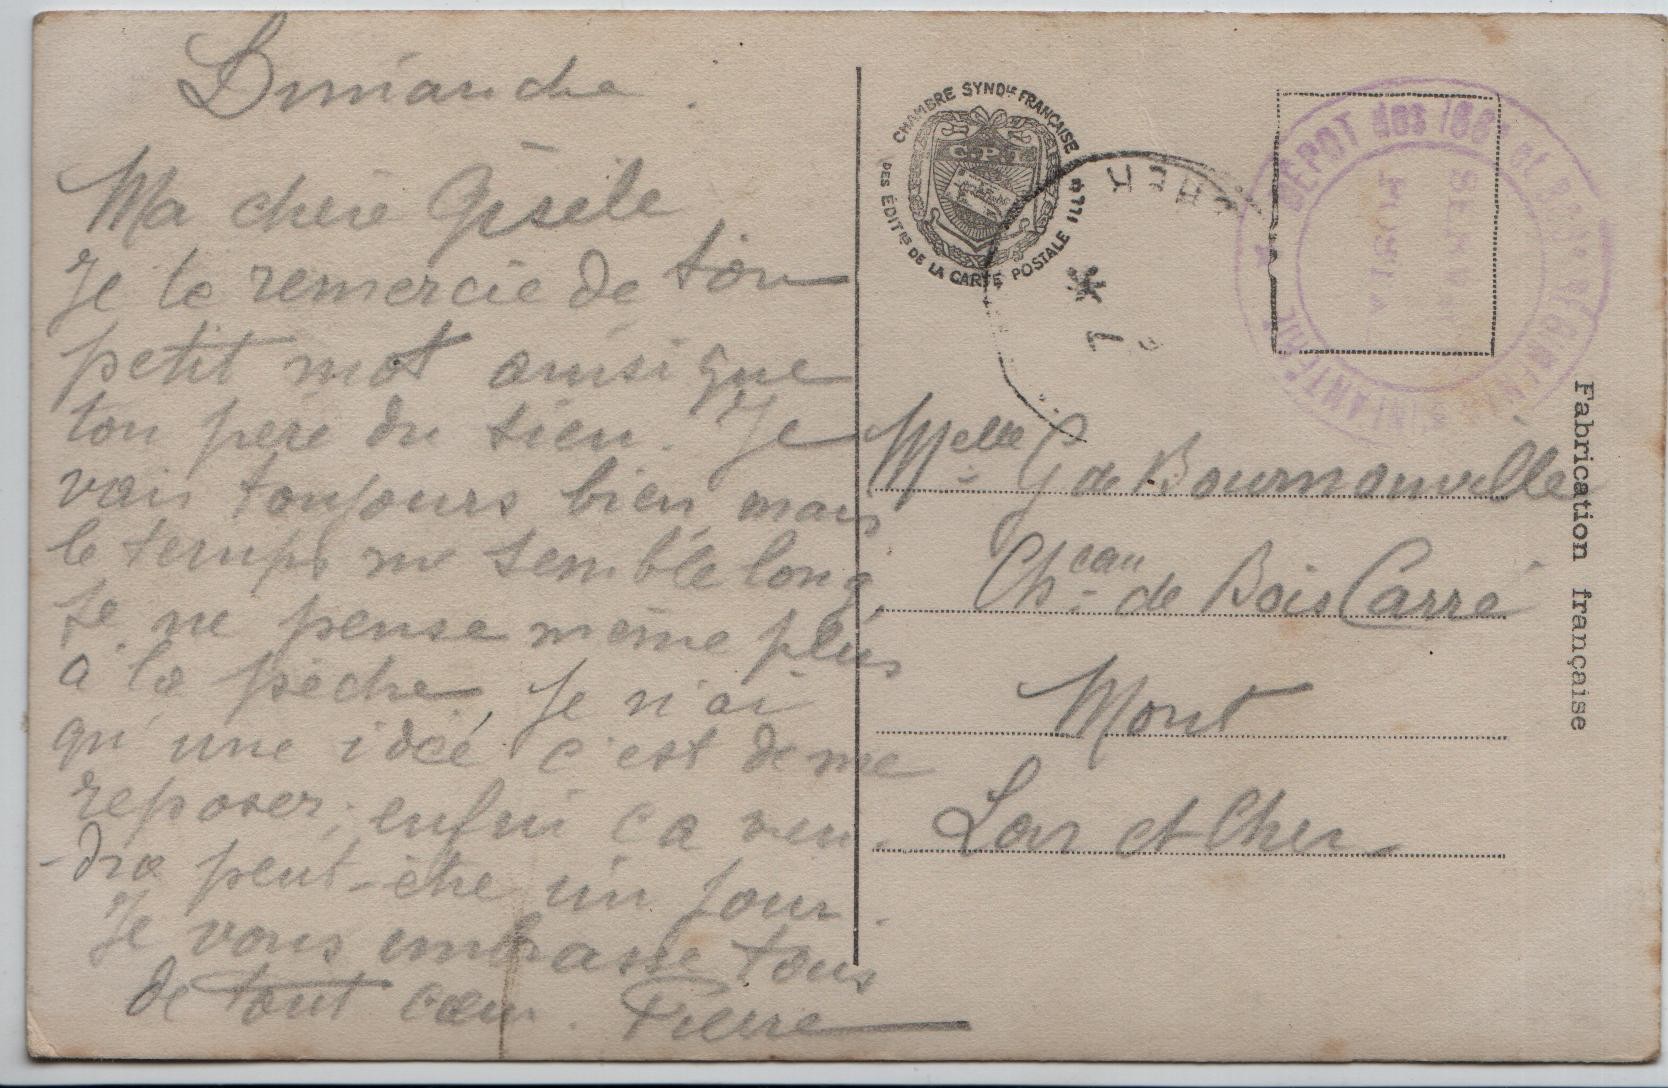 Dimanche.
Ma chère Gisèle
Je te remercie de ton
petit mot ainsi que
ton père du sien. Je
vais toujours bien mais
le temps me semble long,
je ne pense même plus
à la pêche, je n'ai
qu'une idée, c'est de me
reposer; enfin ça vien-
-dra peut-être un jour.
Je vous embrasse tous
de tout cœur. Pierre
CHAMBRE SYNDle FRANÇAISE
DES ÉDITrs DE LA CARTE POSTALE ILLée
C.P.I.
CHER
* 7
DÉPOT des
POSTA
Melle G de Bournonville
Chceau de Bois Carré
Mont
Loir et Cher
Fabrication française